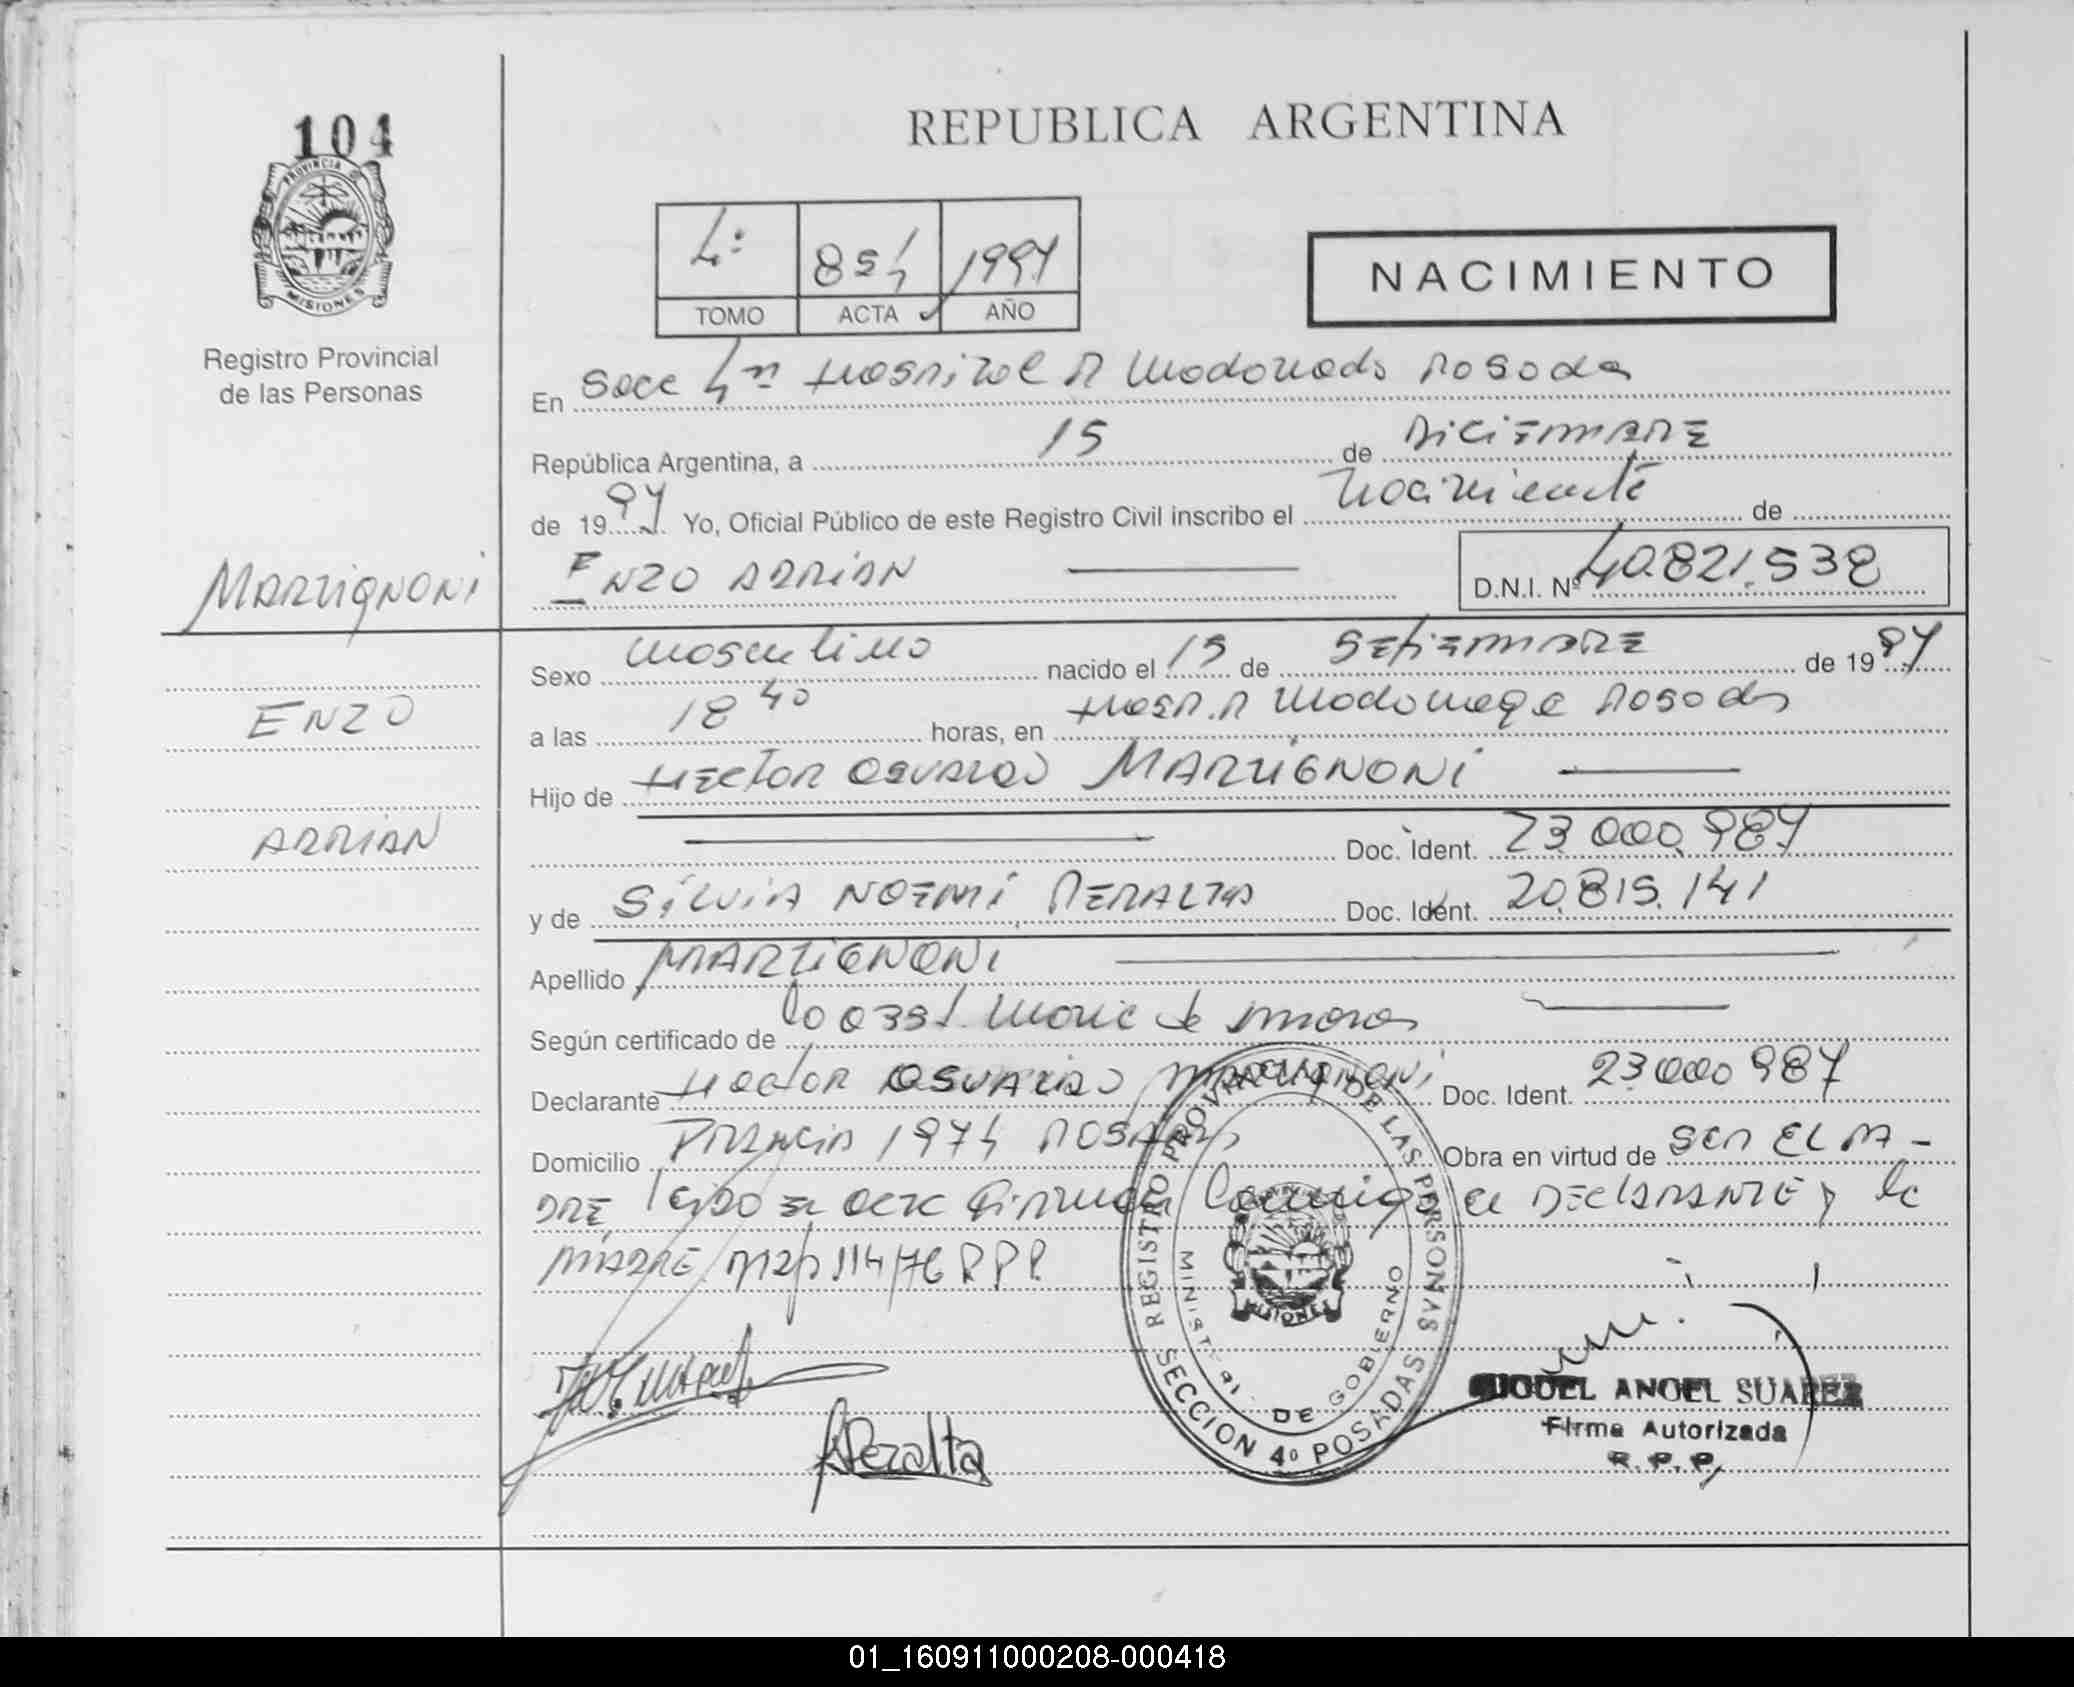 104
PROVINCIA DE
MISIONES
Registro Provincial
de las Personas
REPUBLICA ARGENTINA
4: 854 1997
TOMO ACTA AÑO
NACIMIENTO
En Secc 4ta Hospital R Madariaga Posadas
República Argentina, a 15 de DICIEMBRE
de 1997 Yo, Oficial Público de este Registro Civil inscribo el Nacimiento de
MARTIGNONI ENZO ADRIAN D.N.I. Nº 40.821.538
Sexo masculino nacido el 15 de SETIEMBRE de 1997
ENZO a las 18 40 horas, en Hosp. R Madariaga Posadas
Hijo de HECTOR OSVALDO MARTIGNONI
ADRIAN Doc. Ident. 23.000.987
y de SILVIA NOEMI PERALTA Doc. Ident. 20.815.141
Apellido MARTIGNONI
Según certificado de
Declarante HECTOR OSVALDO MARTIGNONI Doc. Ident. 23.000 987
Domicilio 1974 POSADAS Obra en virtud de SER EL PA-
DRE Leido el acta firman conmigo el DECLARANTE y la
MADRE 114/76 R.P.P.
REGISTRO PROVINCIAL DE LAS PERSONAS
MINISTERIO DE GOBIERNO
MISIONES
SECCION 4º POSADAS
Peralta
MIGUEL ANGEL SUAREZ
Firma Autorizada
R.P.P.
01_160911000208-000418